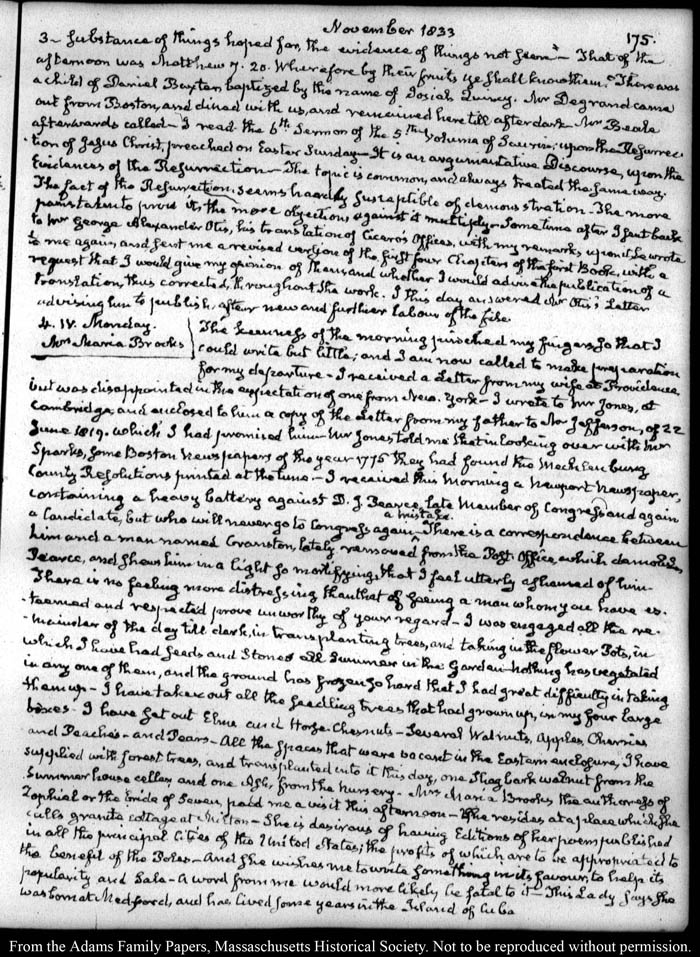 November 1833
175.
3 — substance of things hoped for, the evidence of things not seen" — That of the
afternoon was Matthew 7. 20. Wherefore by their fruits ye shall know them." There was
a child of Daniel Baxter baptized by the name of Josiah Quincy. Mr Degrand came
out from Boston, and dined with us, and remained here till after dark — Mr Beale
afterwards called — I read the 6th Sermon of the 5th volume of Saurin; upon the Resurrec-
tion of Jesus Christ, preached on Easter Sunday — It is an argumentative Discourse, upon the
Evidences of the Resurrection — The topic is common, and always treated the same way.
The fact of the Resurrection, seems hardly susceptible of demonstration. The more
pains taken to prove it, the more objections against it multiply — Some time after I sent back
to Mr George Alexander Otis, his translation of Cicero's Offices, with my remarks upon it he wrote
to me again, and sent me a revised version of the first four Chapters of the first Book, with a
request that I would give my opinion of them and whether I would advise the publication of a
translation, thus corrected, throughout the work. I this day answered Mr Otis's Letter
advising him to publish, after new and further labour of the file
4. IV. Monday.
Mrs Maria Brooks
The keenness of the morning pinched my fingers so that I
could write but little; and I am now called to make preparation
for my departure — I received a Letter from my wife at Providence,
but was disappointed in the expectation of one from New-York — I wrote to Mr Jones, at
Cambridge, and enclosed to him a copy of the Letter from my father to Mr Jefferson, of 22
June 1819. which I had promised him — Mr Jones told me that in looking over with Mr
Sparks, some Boston Newspapers of the year 1775 they had found the Mecklenburg
County Resolutions printed at the time — I received this morning a Newport Newspaper,
containing a heavy battery against D. J. Pearce, late Member of Congress and again
a Candidate, but who will never go to Congress again — a mistake. There is a correspondence between
him and a man named Cranston, lately removed from the Post-Office, which demolishes
Pearce, and shews him in a light so mortifying, that I feel utterly ashamed of him —
There is no feeling more distressing than that of seeing a man whom you have es-
-teemed and respected prove unworthy of your regard — I was engaged all the re-
-mainder of the day till dark, in transplanting trees, and taking in the flower Pots, in
which I have had seeds and Stones all Summer in the Garden — Nothing has vegetated
in any one of them, and the ground has frozen so hard that I had great difficulty in taking
them up — I have taken out all the seedling trees that had grown up, in my four large
boxes. I have set out Elms and Horse-Chesnuts — Several Walnuts, Apples, Cherries
and Peaches — and Pears — All the spaces that were vacant in the Eastern enclosure, I have
supplied with forest trees, and transplanted into it this day, one Shagbark walnut from the
Summer house cellar, and one Ash, from the nursery — Mrs Maria Brooks the authoress of
Zophiel or the bride of Seven, paid me a visit this afternoon — She resides at a place which she
calls granite cottage at Milton — She is desirous of having Editions of her poem published
in all the principal Cities of the United States; the profits of which are to be appropriated to
the benefit of the Poles — And she wishes me to write something in its favour, to help its
popularity and Sale — A word from me would more likely be fatal to it — This Lady says she
was born at Medford, and has lived some years in the Island of Cuba
From the Adams Family Papers, Massachusetts Historical Society. Not to be reproduced without permission.